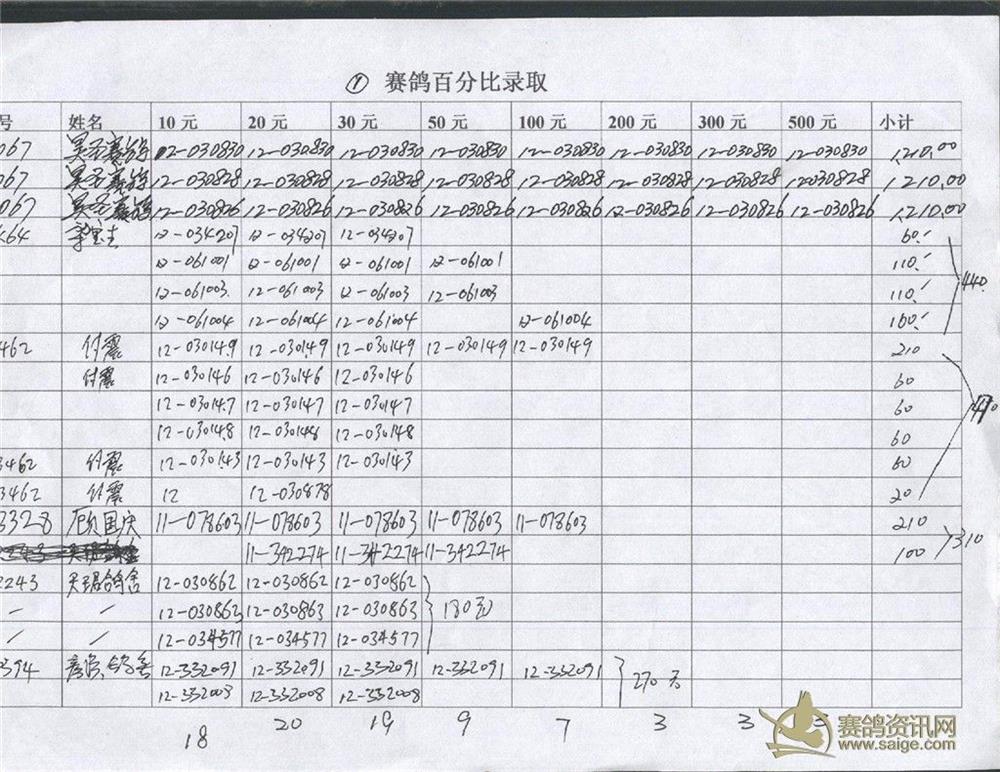 ① 赛鸽百分比录取
号 姓名 10 元 20 元 30 元 50 元 100 元 200 元 300 元 500 元 小计
067 12-030830 12-030830 12-030830 12-030830 12-030830 12-030830 12-030830 12-030830 1,210.00
067 12-030828 12-030828 12-030828 12-030828 12-030828 12-030828 12-030828 12-030828 1,210.00
067 12-030826 12-030826 12-030826 12-030826 12-030826 12-030826 12-030826 12-030826 1,210.00
464 12-034207 12-034207 12-034207 60.-
12-061001 12-061001 12-061001 12-061001 110.-
12-061003 12-061003 12-061003 12-061003 110.-
12-061004 12-061004 12-061004 12-061004 160.-
440.
462 付震 12-030149 12-030149 12-030149 12-030149 12-030149 210
付震 12-030146 12-030146 12-030146 60
12-030147 12-030147 12-030147 60
12-030148 12-030148 12-030148 60
3462 付震 12-030143 12-030143 12-030143 60
3462 付震 12 12-030878 20
3328 顾国庆 11-078603 11-078603 11-078603 11-078603 11-078603 210
11-342274 11-342274 11-342274 100
310
2243 12-030862 12-030862 12-030862
12-030863 12-030863 12-030863 180元
12-034577 12-034577 12-034577
394 12-332091 12-332091 12-332091 12-332091 12-332091
12-332008 12-332008 12-332008 270元
18 20 19 9 7 3 3
赛鸽资讯网
www.saige.com